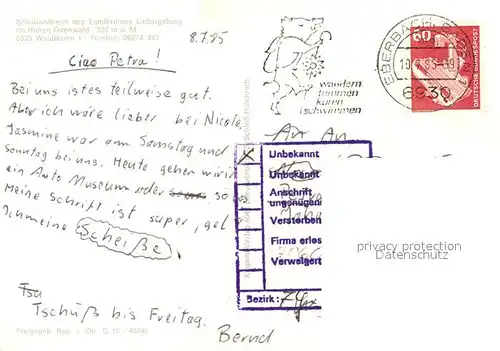 Schullandheim des Landkreises Ludwigsburg
im Hohen Odenwald · 504 m ü. M.
6935 Waldbrunn 1 · Telefon: 06274
8.7.85
Ciao Petra!
Bei uns ist es teilweise gut.
Aber ich wäre lieber bei Nicole,
Jasmine war am Samstag und
Sonntag bei uns. Heute gehen wir in
ein Auto Museum oder so
Meine Schrift ist super, gel
Ich meine Scheiße.
Tschüß bis Freitag.
Bernd
wandern
trimmen
kuren
schwimmen
EBERBACH
6930
60
DEUTSCHE BUNDESPOST
An An
X Unbekannt
Unbekannt
Anschrift
ungenügend
Verstorben
Firma erlos
Verweigert
Bezirk:
privacy protection
Datenschutz